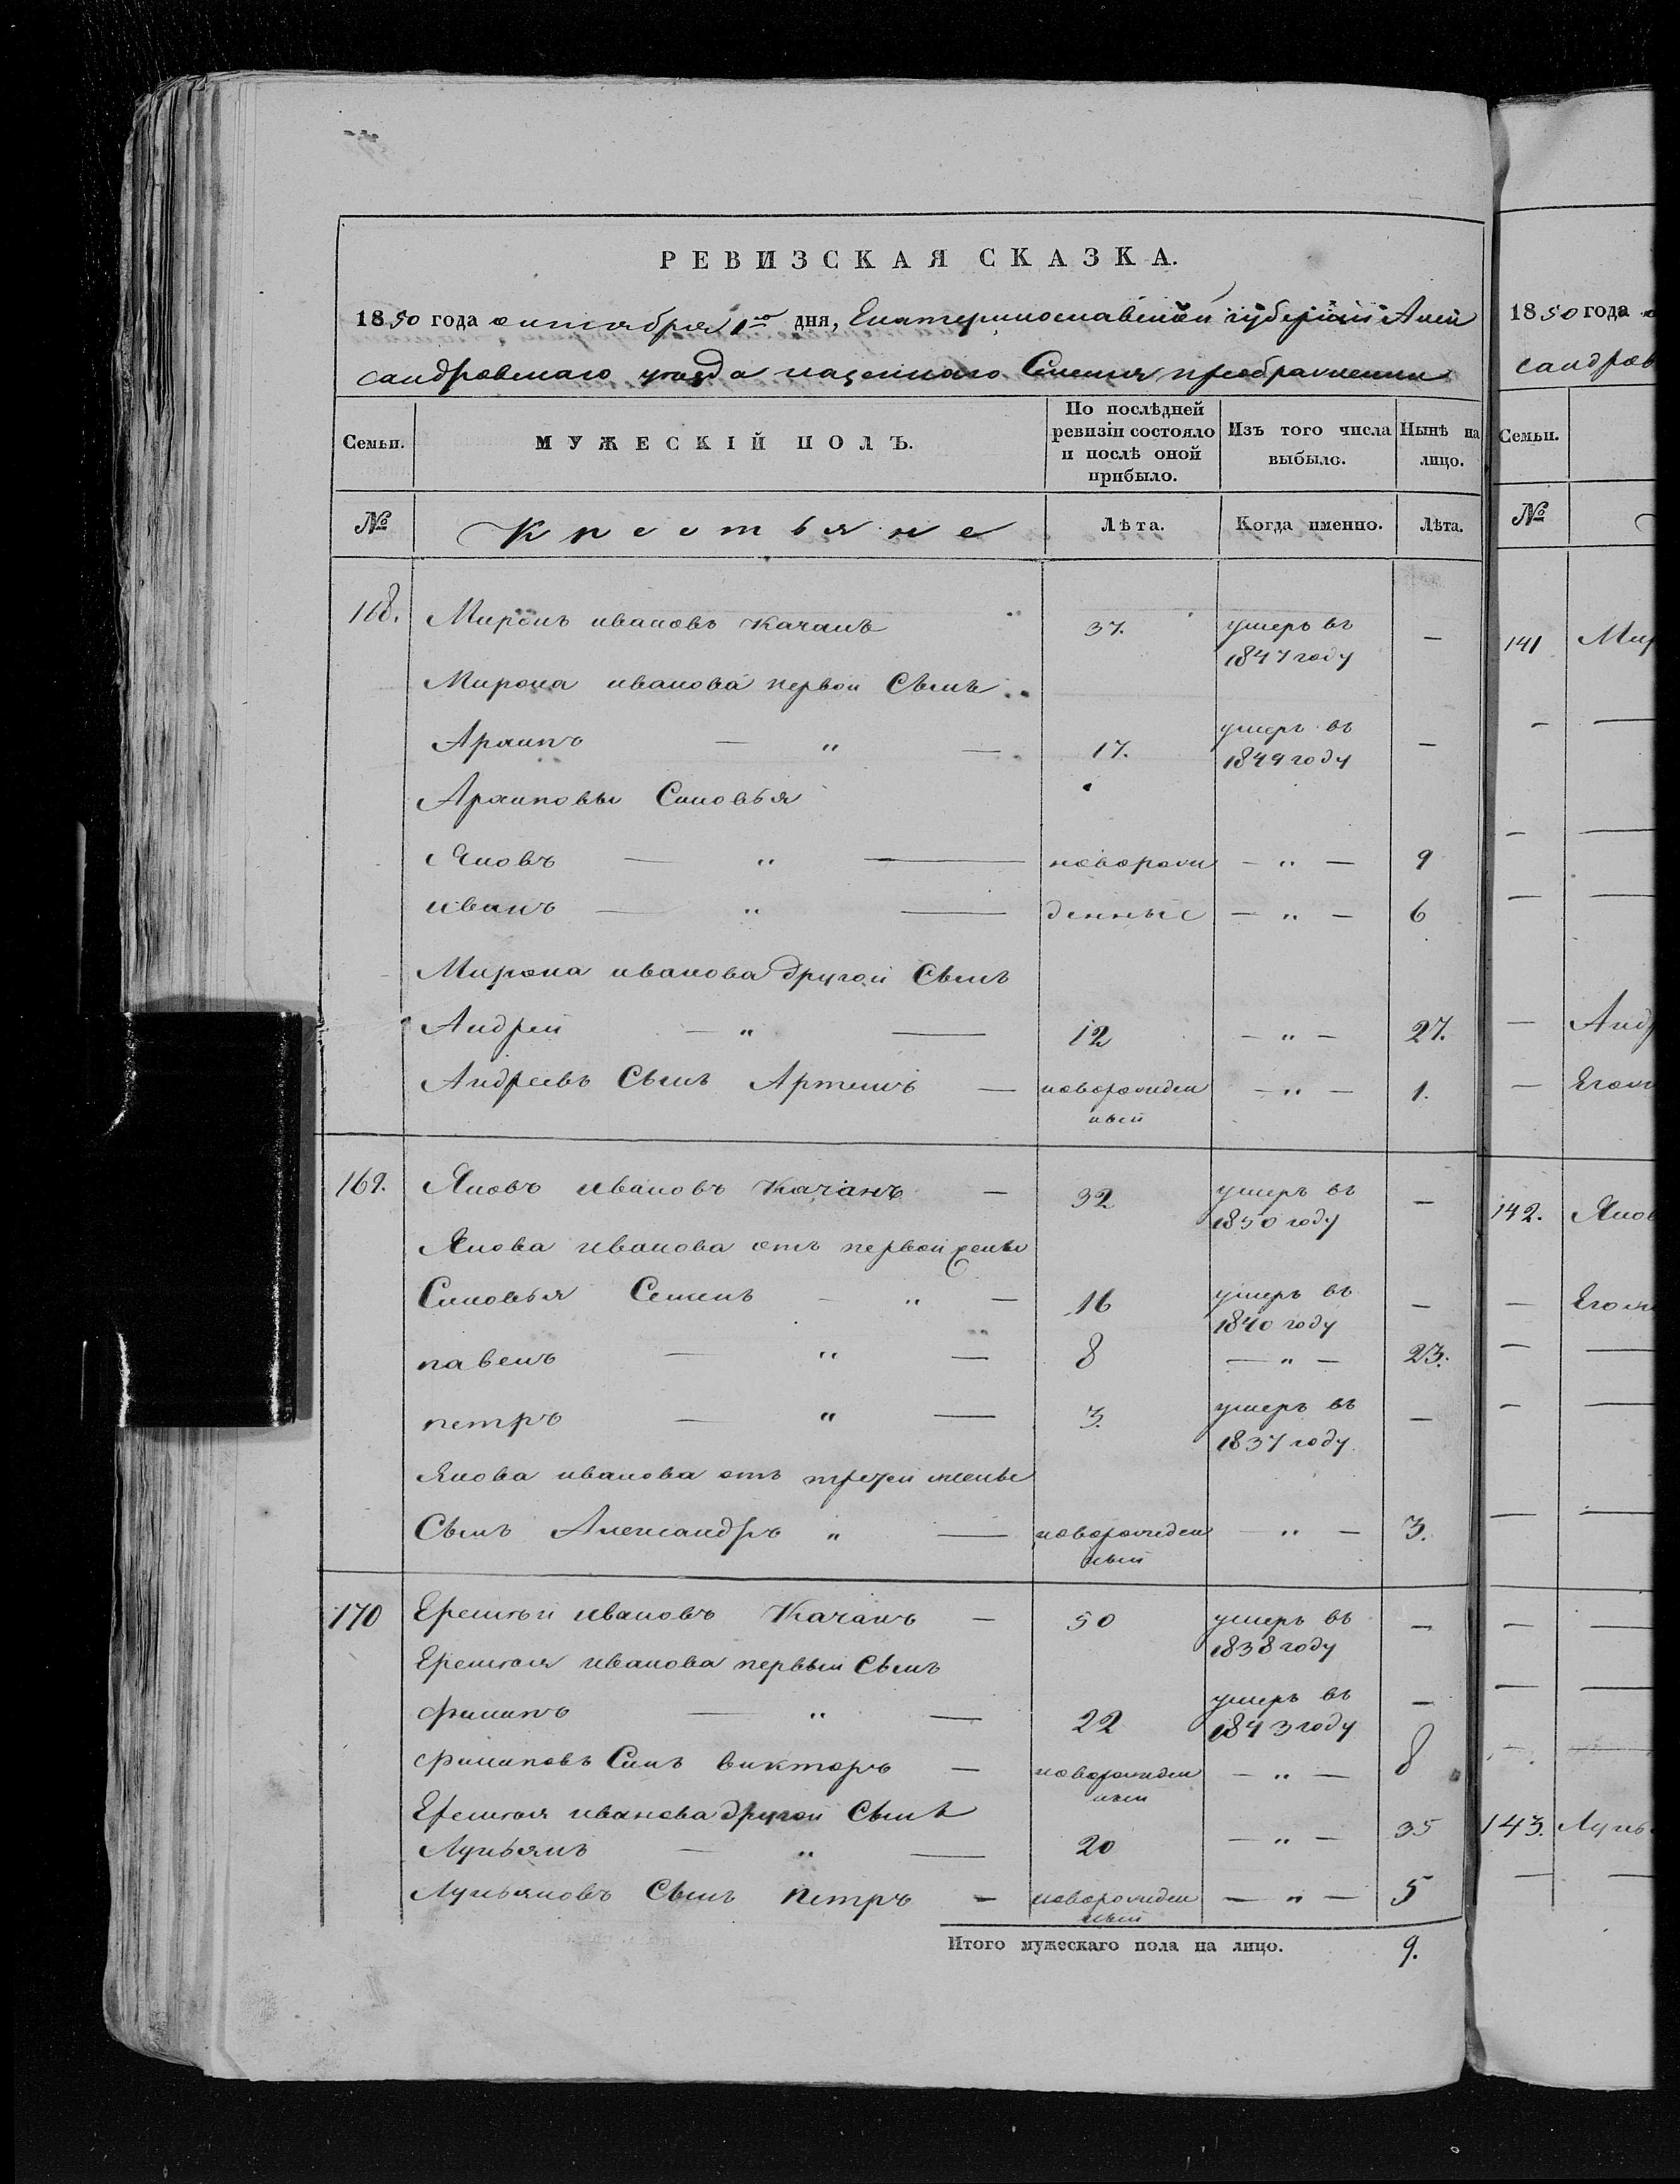 РЕВИЗСКАЯ СКАЗКА.
1850 года октября 1го дня, Екатеринославской губернии Алек
сандровскаго уезда казенного Селения преображенки
Семьи. МУЖЕСКІЙ ПОЛЪ. По послѣдней ревизіи состояло и послѣ оной прибыло. Изъ того числа выбыло. Нынѣ на лицо.
№ Крестьяне Лѣта. Когда именно. Лѣта.
168. Миронъ ивановъ Качанъ 37. умеръ въ 1847 году —
Мирона иванова первой Сынъ
Архипъ — " — 17. умеръ въ 1849 году —
Архиповы Сыновья
Яковъ — " — новорож — " — 9
иванъ — " — денные — " — 6
Мирона иванова другой Сынъ
Андрей — " — 12 — " — 27.
Андреевъ Сынъ Артемъ — новорожден ный — " — 1.
169. Яковъ Ивановъ Качанъ — 32 умеръ въ 1850 году —
Якова иванова отъ первой жены
Сыновья Семенъ — " — 16 умеръ въ 1840 году —
павелъ — " — 8 — " — 23.
петръ — " — 3. умеръ въ 1837 году —
Якова иванова отъ третей жены
Сынъ Александръ " — новорожден ный — " — 3.
170 Еремѣй Ивановъ Качанъ — 50 умеръ въ 1838 году —
Еремѣя иванова первый Сынъ
филипъ — " — 22 умеръ въ 1843 году —
филиповъ Сынъ викторъ — новорожден ный — " — 8
Еремѣя иванова другой Сынъ
Лукьянъ — " — 20 — " — 35
Лукьяновъ Сынъ петръ — новорожден ный — " — 5
Итого мужескаго пола на лицо. 9.
1850 года
сандров
Семьи.
№
141 Мир
— —
— —
— —
— Анд
— Егож
142. Яков
— Егож
— —
— —
— —
— —
— —
— —
143. Лукь
— —